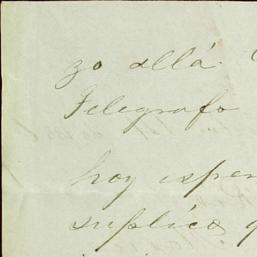 zo allá.
Telegrafo
hoy esper
suplico q